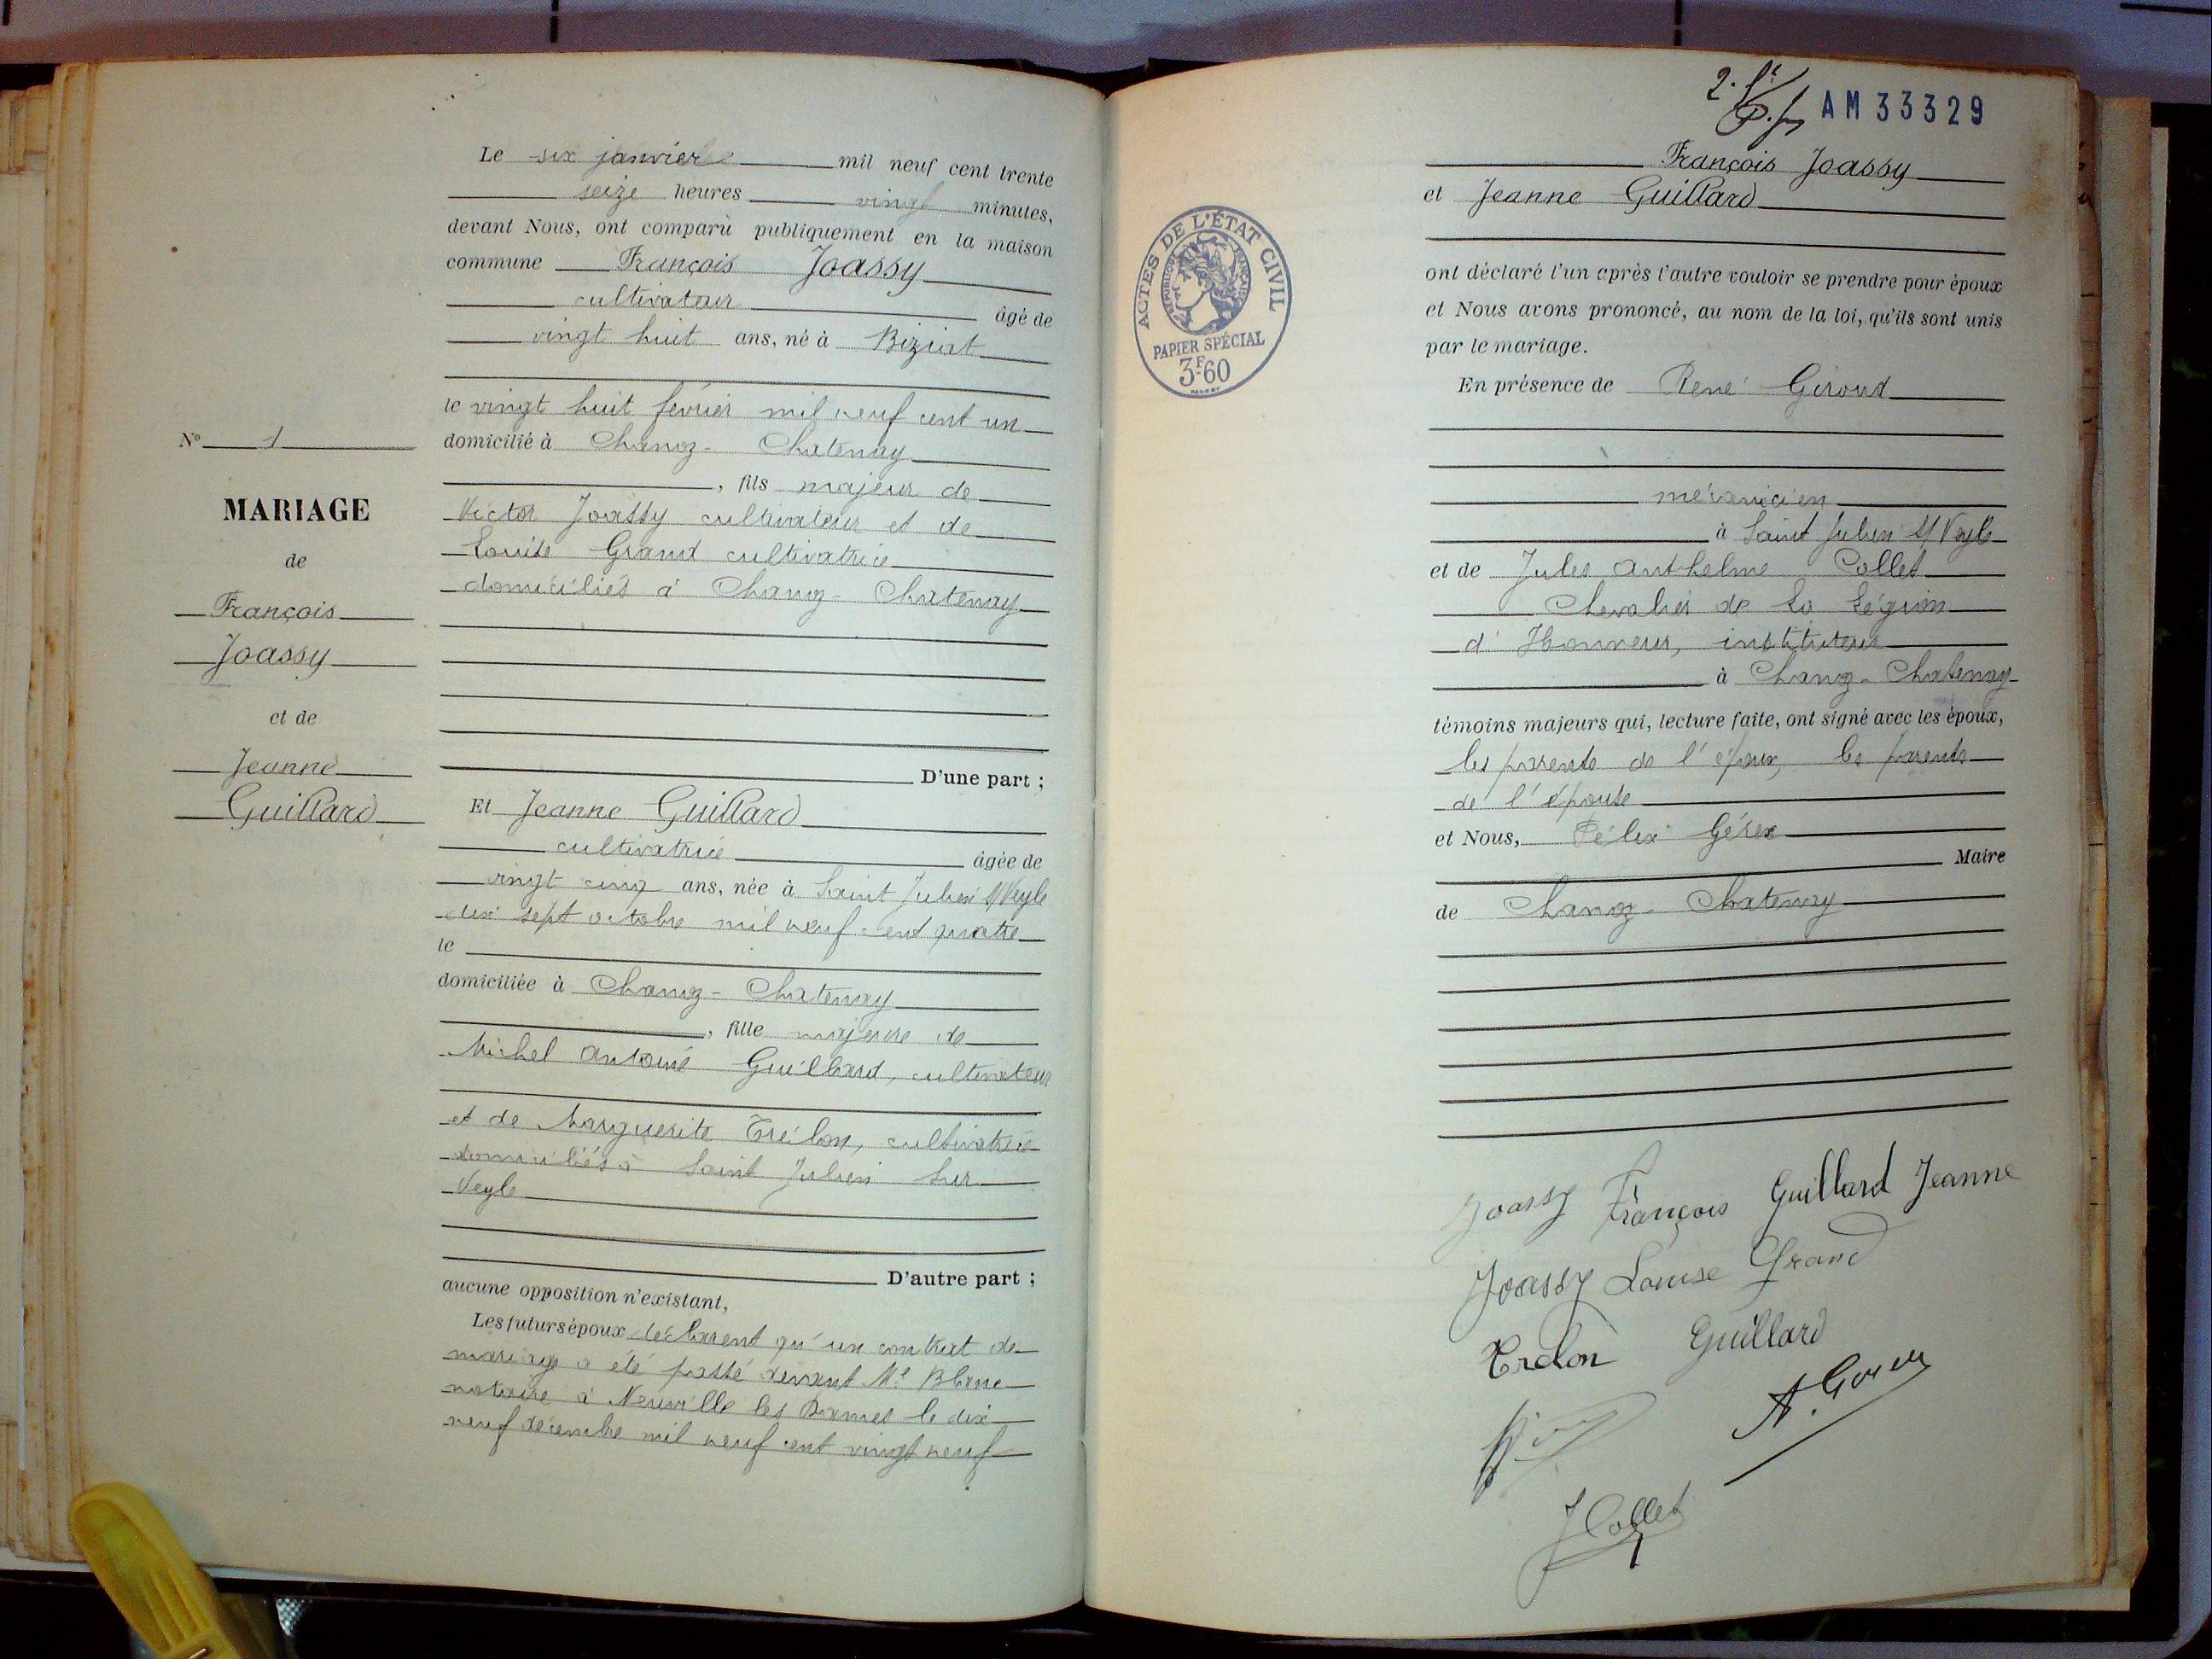 N° 1
MARIAGE
de
François
Joassy
et de
Jeanne
Guillard
Le six janvier mil neuf cent trente
seize heures vingt minutes,
devant Nous, ont comparu publiquement en la maison
commune François Joassy
cultivateur âgé de
vingt huit ans, né à Biziat
le vingt huit février mil neuf cent un
domicilié à Chanoz-Chatenay
, fils majeur de
Victor Joassy cultivateur et de
Louise Grand cultivatrice
domiciliés à Chanoz-Chatenay
D'une part ;
Et Jeanne Guillard
cultivatrice âgée de
vingt cinq ans, née à Saint Julien s/ Veyle
dix sept octobre mil neuf cent quatre
le
domiciliée à Chanoz-Chatenay
, fille majeure de
Michel Antoine Guillard, cultivateur
et de Marguerite Trélon, cultivatrice
domiciliés à Saint Julien sur
Veyle
D'autre part ;
aucune opposition n'existant,
Les futurs époux déclarent qu'un contrat de
mariage a été passé devant Me Blanc
notaire à Neuville les Dames le dix
neuf décembre mil neuf cent vingt neuf
AM 33329
ACTES DE L'ÉTAT CIVIL
RÉPUBLIQUE FRANÇAISE
PAPIER SPÉCIAL
3F.60
François Joassy
et Jeanne Guillard
ont déclaré l'un après l'autre vouloir se prendre pour époux
et Nous avons prononcé, au nom de la loi, qu'ils sont unis
par le mariage.
En présence de René Giroud
mécanicien
à Saint Julien s/ Veyle
et de Jules Anthelme Collet
Chevalier de la Légion
d'Honneur, instituteur
à Chanoz-Chatenay
témoins majeurs qui, lecture faite, ont signé avec les époux,
les parents de l'époux, les parents
de l'épouse
et Nous, Félix Gérex
Maire
de Chanoz-Chatenay
Joassy François Guillard Jeanne
Joassy Louise Grand
Trelon Guillard
J Collet